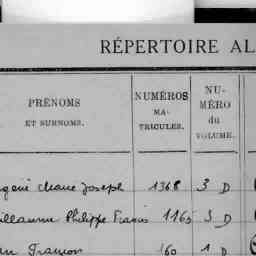 RÉPERTOIRE AL
PRÉNOMS
ET SURNOMS.
NUMÉROS
MA-
TRICULES.
NU-
MÉRO
du
VOLUME.
Marie Joseph 1368 3 D
Philippe Francis 1165 3 D
François 160 1 D